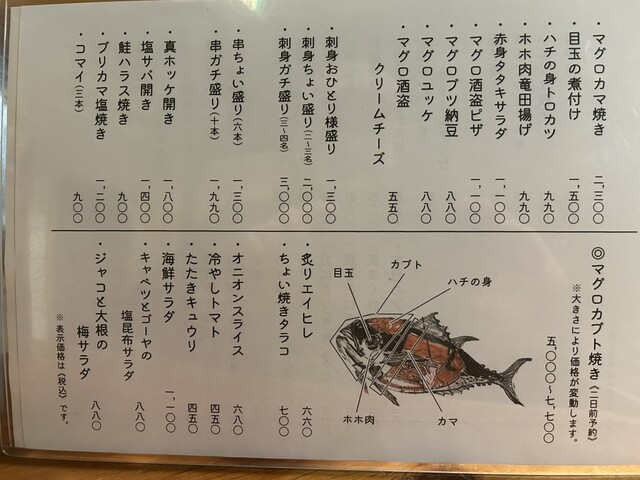 ・マグロカマ焼き 二、三〇〇
・目玉の煮付け 一、五〇〇
・ハチの身トロカツ 九九〇
・ホホ肉竜田揚げ 九九〇
・赤身タタキサラダ 一、一〇〇
・マグロ酒盗ピザ 一、一〇〇
・マグロブツ納豆 八八〇
・マグロユッケ 八八〇
・マグロ酒盗
クリームチーズ 五五〇
・刺身おひとり様盛り 一、三〇〇
・刺身ちょい盛り(二~三名) 二、〇〇〇
・刺身ガチ盛り(三~四名) 三、〇〇〇
・串ちょい盛り(六本) 一、三〇〇
・串ガチ盛り(十本) 一、九九〇
・真ホッケ開き 一、八〇〇
・塩サバ開き 一、四〇〇
・鮭ハラス焼き 九〇〇
・ブリカマ塩焼き 一、二〇〇
・コマイ(三本) 九〇〇
◎マグロカブト焼き(二日前予約)
※大きさにより価格が変動します。
五、〇〇〇~七、七〇〇
カブト
ハチの身
目玉
ホホ肉
カマ
・炙りエイヒレ 六六〇
・ちょい焼きタラコ 七〇〇
・オニオンスライス 六八〇
・冷やしトマト 四五〇
・たたきキュウリ 四五〇
・海鮮サラダ 一、一〇〇
・キャベツとゴーヤの
塩昆布サラダ 八八〇
・ジャコと大根の
梅サラダ 八八〇
※表示価格は(税込)です。